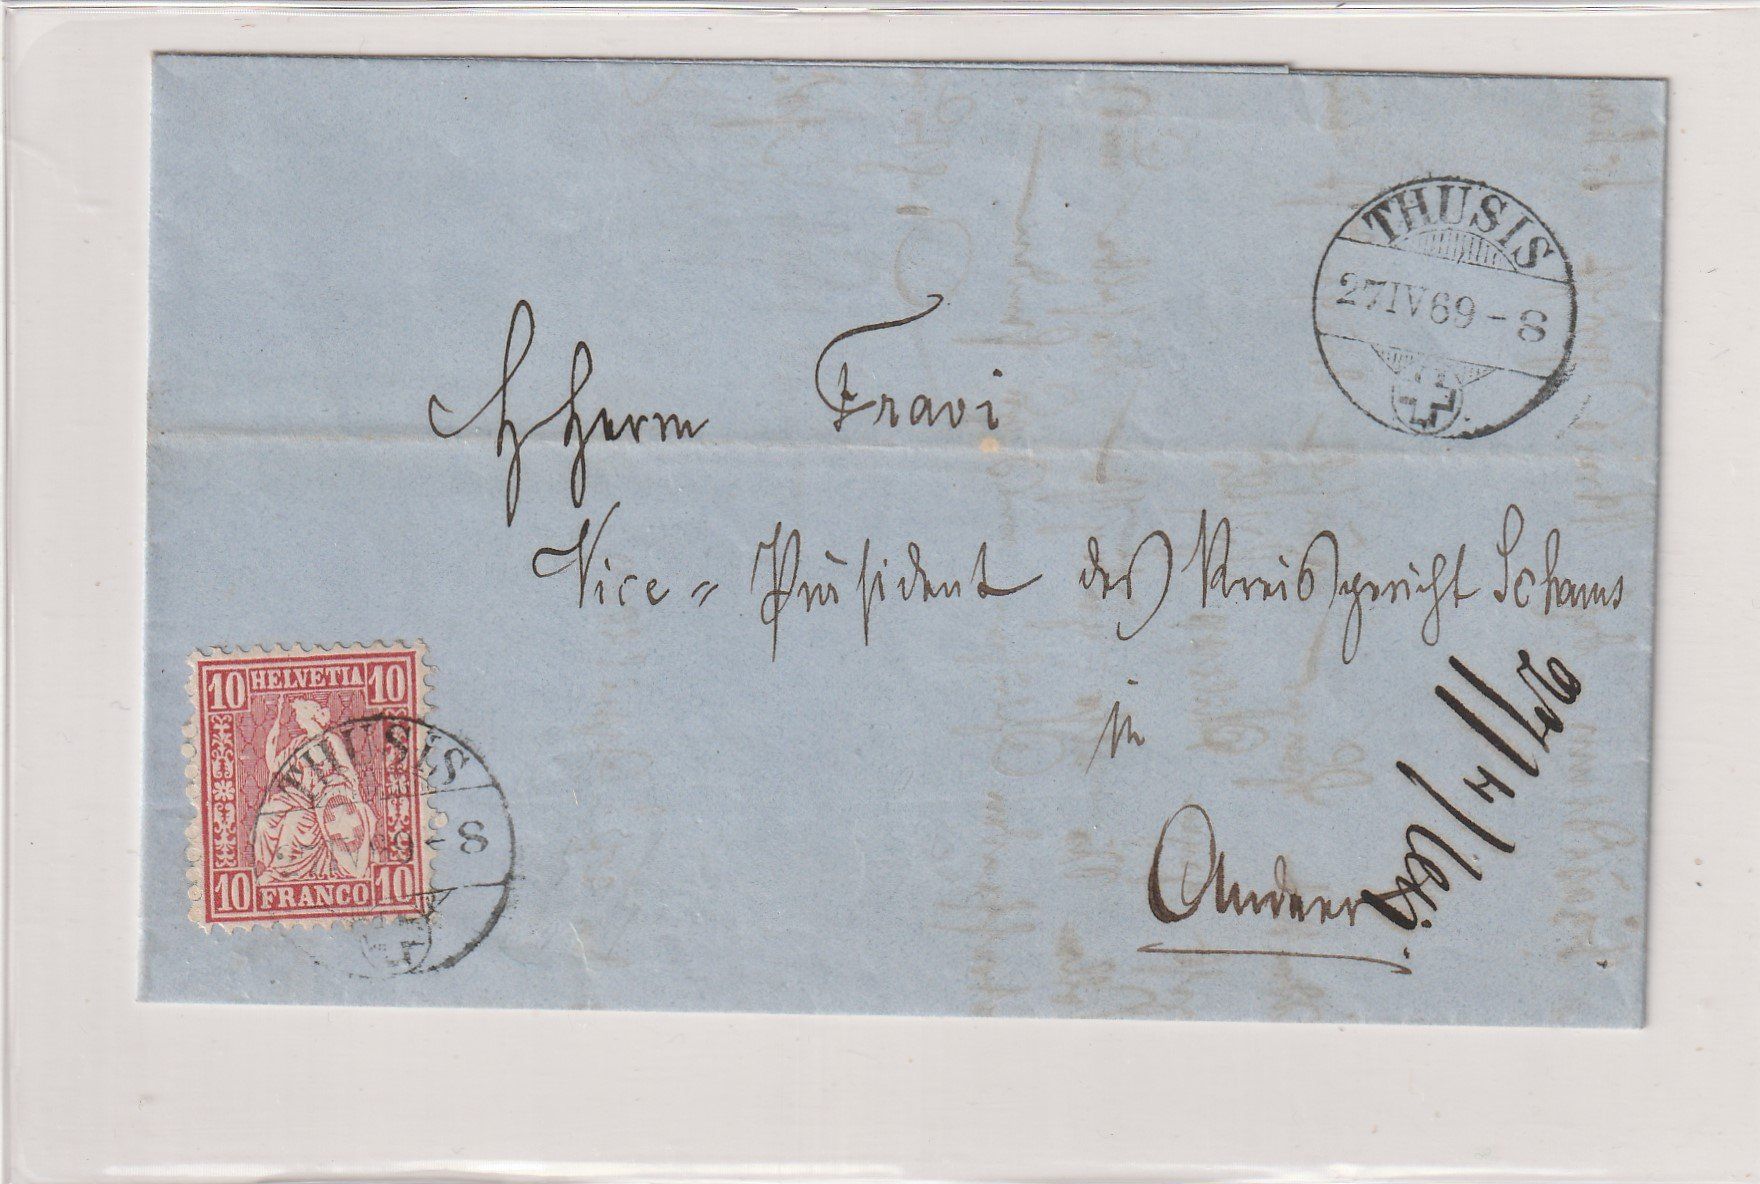 THUSIS
27 IV 69 - 8
HHerrn Fravi
Vice= Präsident des Kreisgericht Schams
in
Andeer
10 HELVETIA 10
THUSIS
69 - 8
10 FRANCO 10